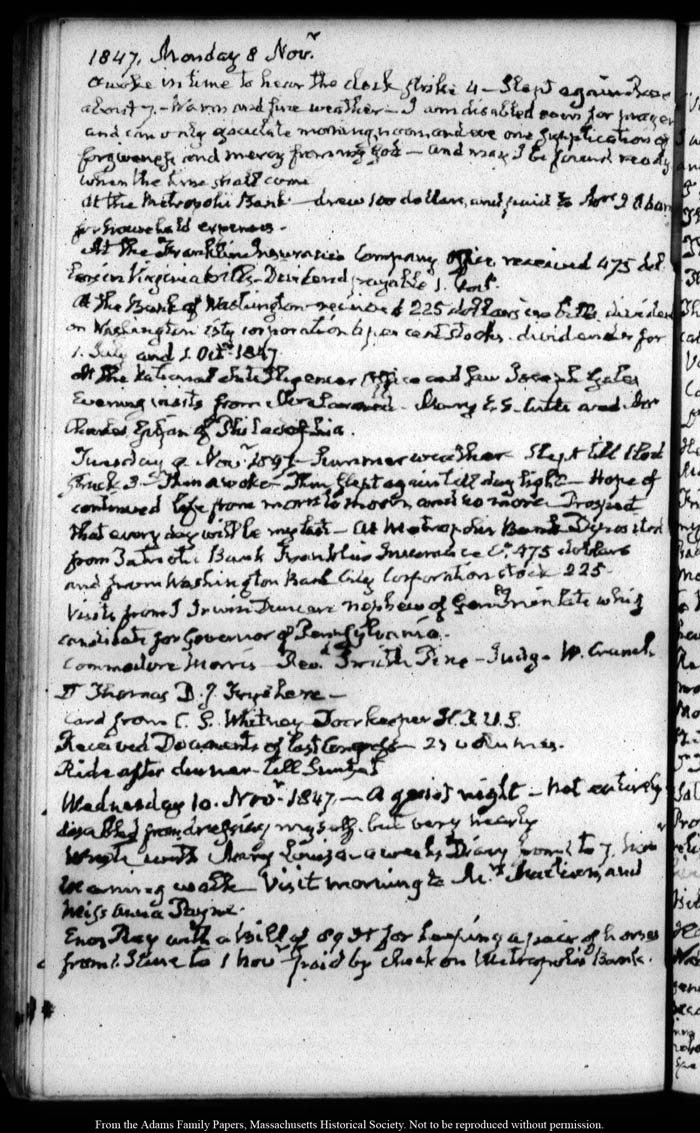 1847. Monday 8 Novr.
awoke in time to hear the clock strike 4 - Slept again Rose
about 7. - Warm and fine weather - I am disabled even for prayer
and can only ejaculate morning, noon and eve one supplication of
forgiveness and mercy from my god - and may I be found ready
when the time shall come
At the Metropolis Bank - drew 100 dollars, and paid to
for household expences.
At the Franklin Insurance Company Office, received 475 dol
in Virginia bills - Dividend payable 1.
At the Bank of Washington received 225 dollars in bills dividend
on Washington City corporation 6 per cent Stocks. dividends for
1. July and 1. Octr. 1847.
At the National Intelligencer Office and saw Joseph Gales
Evening visits from - Mary E. S. Cutts and
Charles of Philadelphia.
Tuesday 9. Novr. 1847 - Summer weather Slept till clock
struck 3 - Then awoke - Then slept again till day light - Hope of
continued life from morn to and no more. Prospect
that every day will be my last - At Metropolis Bank Deposited
from Patriotic Bank Franklin Insurance Co. 475 dollars
and from Washington Bank City Corporation stock 225.
Visits from J Irwin nephew of late whig
candidate for Governor of Pennsylvania.
Commodore Morris - Revd. Smith Pine - Judge W. Cranch
Dr Thomas B. J. Frye here -
Card from C. S. Whitney Doorkeeper H.R.U.S.
Received Documents of last Congress - 23 volumes.
Ride after dinner till Sunset
Wednesday 10. Novr. 1847. - A quiet night - not entirely
disabled from dressing myself, but very nearly
Wrote with Mary Louisa a week's Diary from 1 to 7. Novr
Morning walk Visit morning to Mrs. Madison, and
Miss Anna Payne.
Enos Ray with a bill of for keeping a pair of horses
from 1. June to 1 Novr paid by check on Metropolis Bank.
From the Adams Family Papers, Massachusetts Historical Society. Not to be reproduced without permission.